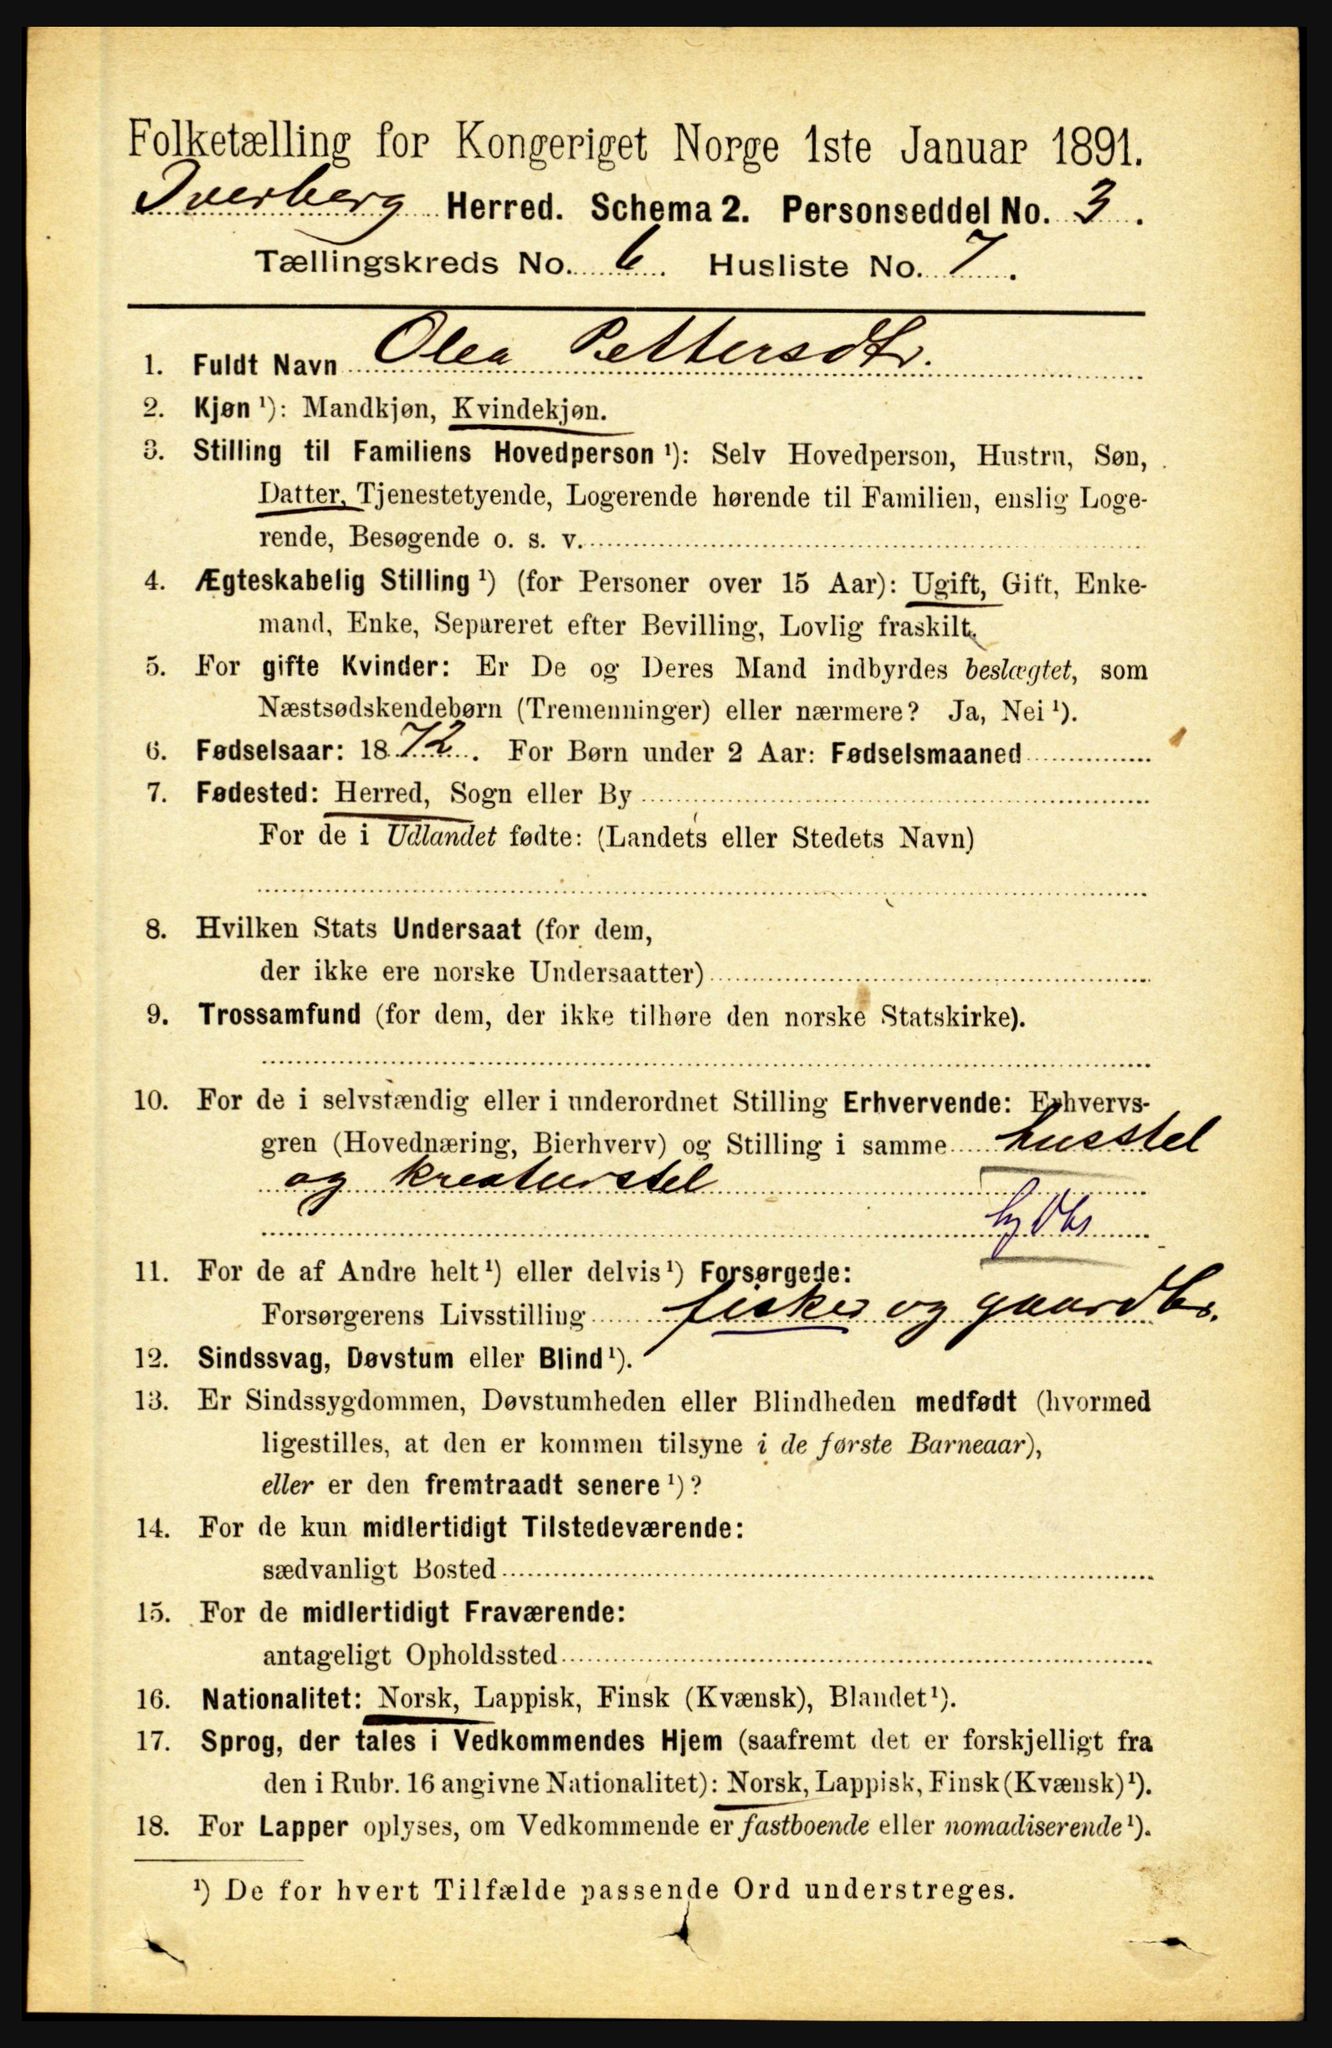 Folketælling for Kongeriget Norge 1ste Januar 1891.
Dverberg Herred. Schema 2. Personseddel No. 3.
Tællingskreds No. 6. Husliste No. 7.
1. Fuldt Navn Olea Pettersdtr.
2. Kjøn ¹): Mandkjøn, Kvindekjøn.
3. Stilling til Familiens Hovedperson ¹): Selv Hovedperson, Hustru, Søn,
Datter, Tjenestetyende, Logerende hørende til Familien, enslig Loge-
rende, Besøgende o. s. v.
4. Ægteskabelig Stilling ¹) (for Personer over 15 Aar): Ugift, Gift, Enke-
mand, Enke, Separeret efter Bevilling, Lovlig fraskilt.
5. For gifte Kvinder: Er De og Deres Mand indbyrdes beslægtet, som
Næstsødskendebørn (Tremenninger) eller nærmere? Ja, Nei ¹).
6. Fødselsaar: 1872. For Børn under 2 Aar: Fødselsmaaned
7. Fødested: Herred, Sogn eller By
For de i Udlandet fødte: (Landets eller Stedets Navn)
8. Hvilken Stats Undersaat (for dem,
der ikke ere norske Undersaatter)
9. Trossamfund (for dem, der ikke tilhøre den norske Statskirke).
10. For de i selvstændig eller i underordnet Stilling Erhvervende: Erhvervs-
gren (Hovednæring, Bierhverv) og Stilling i samme husstel
og kreaturstel
11. For de af Andre helt ¹) eller delvis ¹) Forsørgede:
Forsørgerens Livsstilling fisker og gaardbr.
12. Sindssvag, Døvstum eller Blind ¹).
13. Er Sindssygdommen, Døvstumheden eller Blindheden medfødt (hvormed
ligestilles, at den er kommen tilsyne i de første Barneaar),
eller er den fremtraadt senere ¹)?
14. For de kun midlertidigt Tilstedeværende:
sædvanligt Bosted
15. For de midlertidigt Fraværende:
antageligt Opholdssted
16. Nationalitet: Norsk, Lappisk, Finsk (Kvænsk), Blandet ¹).
17. Sprog, der tales i Vedkommendes Hjem (saafremt det er forskjelligt fra
den i Rubr. 16 angivne Nationalitet): Norsk, Lappisk, Finsk (Kvænsk) ¹).
18. For Lapper oplyses, om Vedkommende er fastboende eller nomadiserende ¹).
¹) De for hvert Tilfælde passende Ord understreges.